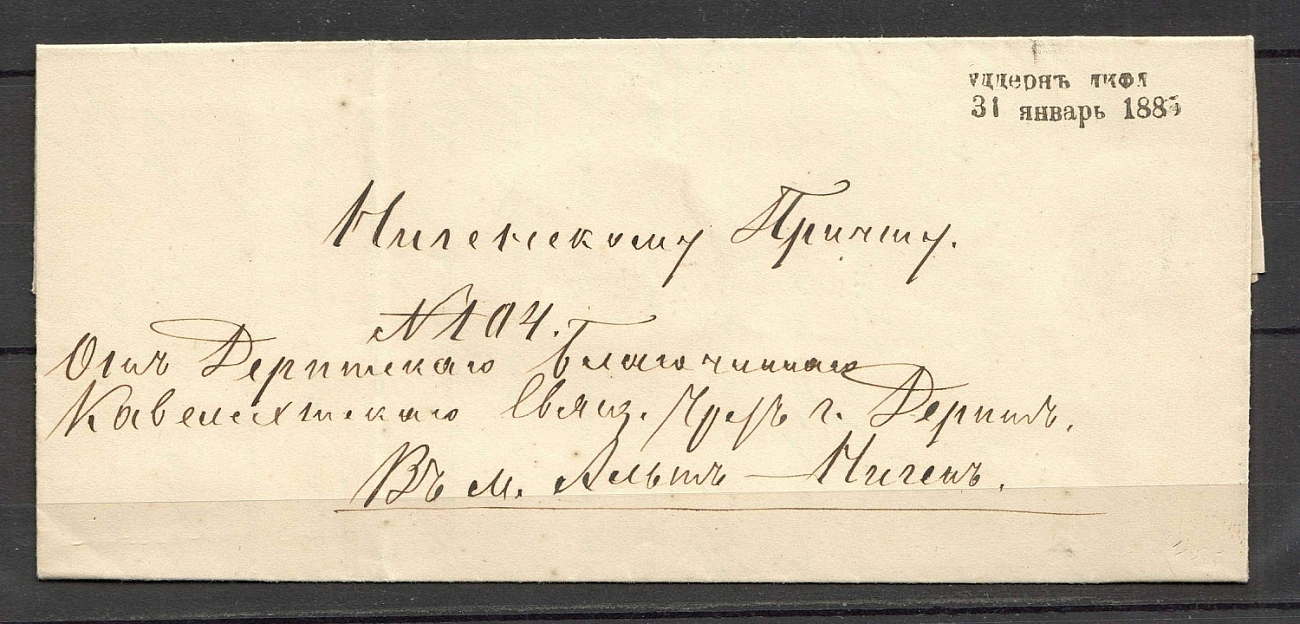 уддернъ лифл
31 январь 1885
Нигенскому Причту.
№104.
Отъ Дерптскаго Благочиннаго
Кавелехтскаго Свящ. Чрезъ г. Дерптъ.
Въ м. Альтъ-Нигенъ.